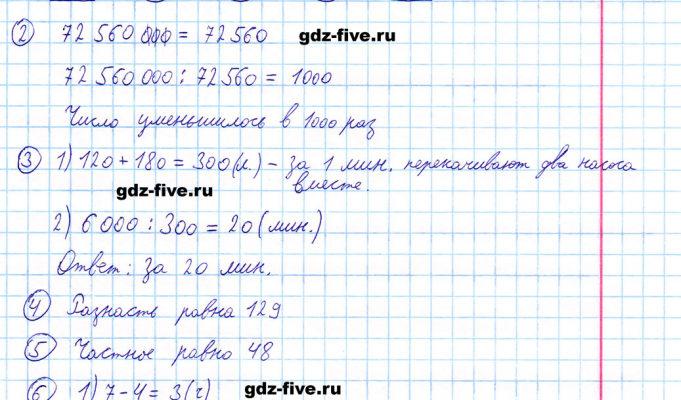 ② 72 560 000 = 72 560 gdz-five.ru
72 560 000 : 72 560 = 1000
Число уменьшилось в 1000 раз
③ 1) 120 + 180 = 300 (л.) – за 1 мин. перекачивают два насоса
вместе.
gdz-five.ru
2) 6 000 : 300 = 20 (мин.)
Ответ: за 20 мин.
④ Разность равна 129
⑤ Частное равно 48
⑥ 1) 7 – 4 = 3 (г) gdz-five.ru